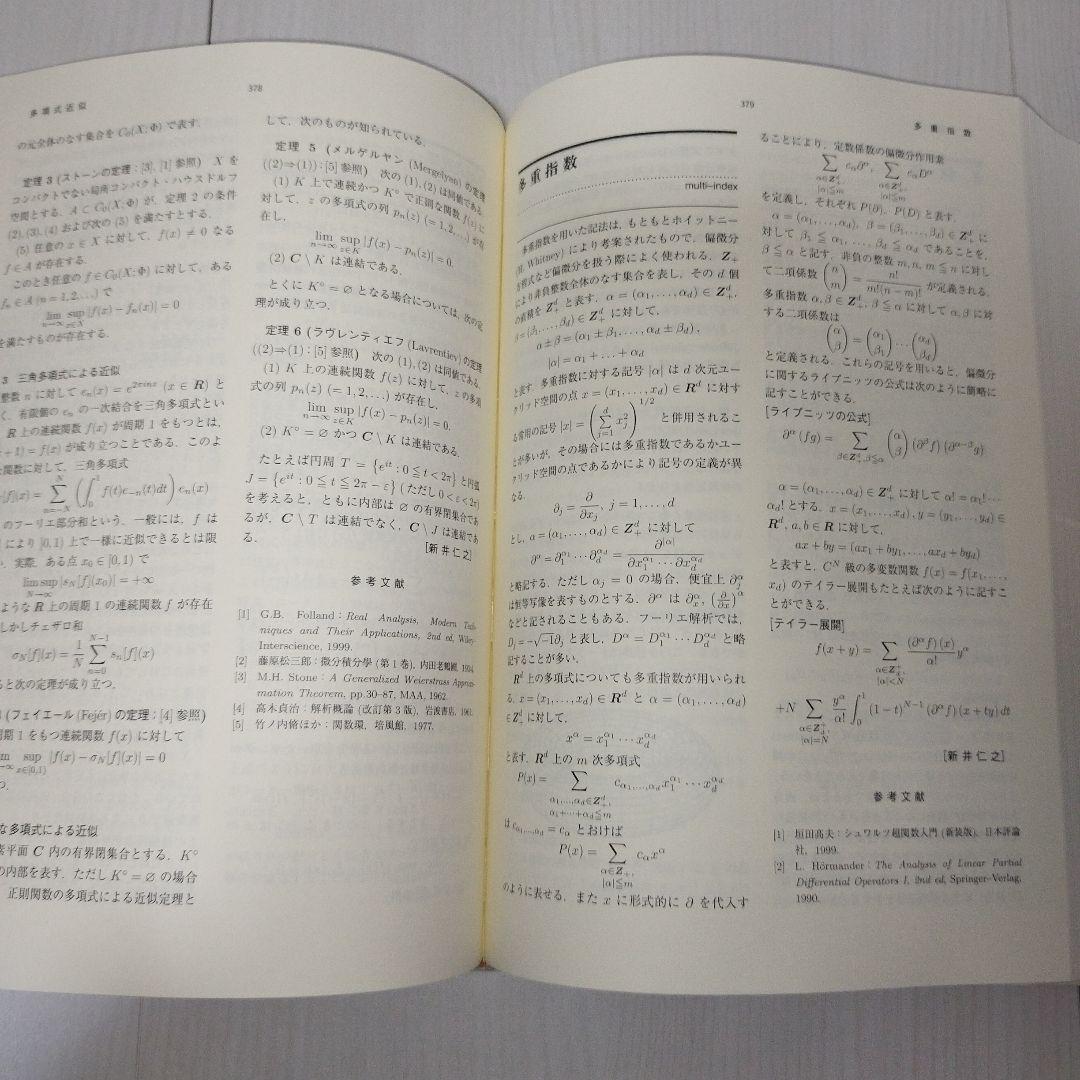 多項式近似
378
の元全体のなす集合を C₀(X;Φ) で表す.
定理 3 (ストーンの定理:[3], [1] 参照) X を
コンパクトでない局所コンパクト・ハウスドルフ
空間とする. A ⊂ C₀(X;Φ) が, 定理 2 の条件
(2), (3), (4) および次の (5) を満たすとする.
(5) 任意の x ∈ X に対して, f(x) ≠ 0 なる
f ∈ A が存在する.
このとき任意の f ∈ C₀(X;Φ) に対して, ある
fₙ ∈ A (n = 1, 2, …) で
lim_{n→∞} sup_{x∈X} |f(x) − fₙ(x)| = 0
を満たすものが存在する.
3 三角多項式による近似
整数 n に対して eₙ(x) = e^{2πinx} (x ∈ R) と
く, 有限個の eₙ の一次結合を三角多項式とい
R 上の連続関数 f(x) が周期 1 をもつとは,
+1) = f(x) が成り立つことである. このよ
な関数に対して, 三角多項式
[f](x) = Σ_{n=−N}^{N} (∫₀¹ f(t)e₋ₙ(t)dt) eₙ(x)
のフーリエ部分和という. 一般には, f は
により [0,1) 上で一様に近似できるとは限
い. 実際, ある点 x₀ ∈ [0,1) で
lim sup_{N→∞} |s_N[f](x₀)| = +∞
ような R 上の周期 1 の連続関数 f が存在
しかしチェザロ和
σ_N[f](x) = 1/N Σ_{n=0}^{N−1} sₙ[f](x)
ると次の定理が成り立つ.
(フェイエール (Fejér) の定理:[4] 参照)
周期 1 をもつ連続関数 f(x) に対して
sup_{x∈[0,1)} |f(x) − σ_N[f](x)| = 0
つ.
な多項式による近似
素平面 C 内の有界閉集合とする. K° 
の内部を表す. ただし K° = ∅ の場合
正則関数の多項式による近似定理と
して, 次のものが知られている.
定理 5 (メルゲルヤン (Mergelyan) の定理
((2)⇒(1)):[5] 参照) 次の (1), (2) は同値である.
(1) K 上で連続かつ K° で正則な関数 f(z) に
対して, z の多項式の列 pₙ(z) (= 1, 2, …) が存
在し,
lim_{n→∞} sup_{z∈K} |f(x) − pₙ(z)| = 0.
(2) C \ K は連結である.
とくに K° = ∅ となる場合については, 次の定
理が成り立つ.
定理 6 (ラヴレンティエフ (Lavrentiev) の定理
((2)⇒(1):[5] 参照) 次の (1), (2) は同値である.
(1) K 上の連続関数 f(z) に対して, z の多項
式の列 pₙ(z) (= 1, 2, …) が存在し,
lim_{n→∞} sup_{z∈K} |f(x) − pₙ(z)| = 0.
(2) K° = ∅ かつ C \ K は連結である.
たとえば円周 T = {e^{it} : 0 ≦ t < 2π} と円弧
J = {e^{it} : 0 ≦ t ≦ 2π − ε} (ただし 0 < ε < 2π)
を考えると, ともに内部は ∅ の有界閉集合であ
るが, C \ T は連結でなく, C \ J は連結であ
る.
[新井仁之]
参考文献
[1] G.B. Folland : Real Analysis, Modern Tech-
niques and Their Applications, 2nd ed, Wiley-
Interscience, 1999.
[2] 藤原松三郎 : 微分積分學 (第 1 巻), 内田老鶴圃, 1934.
[3] M.H. Stone : A Generalized Weierstrass Approx-
mation Theorem, pp.30–87, MAA, 1962.
[4] 高木貞治 : 解析概論 (改訂第 3 版), 岩波書店, 1961.
[5] 竹ノ内脩ほか : 関数環, 培風館, 1977.
379
多重指数
多重指数
multi–index
多重指数を用いた記法は, もともとホイットニー
(H. Whitney) により考案されたもので, 偏微分
方程式など偏微分を扱う際によく使われる. Z₊
により非負整数全体のなす集合を表し, その d 個
の直積を Z₊ᵈ と表す. α = (α₁, …, α_d) ∈ Z₊ᵈ,
β = (β₁, …, β_d) ∈ Z₊ᵈ に対して,
α ± β = (α₁ ± β₁, …, α_d ± β_d),
|α| = α₁ + … + α_d
と表す. 多重指数に対する記号 |α| は d 次元ユー
クリッド空間の点 x = (x₁, …, x_d) ∈ Rᵈ に対す
る常用の記号 |x| = (Σ_{j=1}^{d} x_j²)^{1/2} と併用されるこ
とが多いが, その場合には多重指数であるかユー
クリッド空間の点であるかにより記号の定義が異
なる.
∂_j = ∂/∂x_j, j = 1, …, d
とし, α = (α₁, …, α_d) ∈ Z₊ᵈ に対して
∂^α = ∂₁^{α₁} ⋯ ∂_d^{α_d} = ∂^{|α|}/∂x₁^{α₁} ⋯ ∂x_d^{α_d}
と略記する. ただし α_j = 0 の場合, 便宜上 ∂_j^0
は恒等写像を表すものとする. ∂^α は ∂_x^α, (∂/∂x)^α
などと記されることもある. フーリエ解析では,
D_j = −√−1∂_j と表し, D^α = D₁^{α₁} ⋯ D_d^{α_d} と略
記することが多い.
Rᵈ 上の多項式についても多重指数が用いられ
る. x = (x₁, …, x_d) ∈ Rᵈ と α = (α₁, …, α_d)
∈ Z₊ᵈ に対して,
x^α = x₁^{α₁} ⋯ x_d^{α_d}
と表す. Rᵈ 上の m 次多項式
P(x) = Σ_{α₁,…,α_d∈Z₊ᵈ, α₁+⋯+α_d≦m} c_{α₁,…,α_d} x₁^{α₁} ⋯ x_d^{α_d}
は c_{α₁,…,α_d} = c_α とおけば
P(x) = Σ_{α∈Z₊, |α|≦m} c_α x^α
のように表せる. また x に形式的に ∂ を代入す
ることにより, 定数係数の偏微分作用素
Σ_{α∈Z₊ᵈ, |α|≦m} c_α ∂^α, Σ_{α∈Z₊ᵈ, |α|≦m} c_α D^α
を定義し, それぞれ P(∂), P(D) と表す.
α = (α₁, …, α_d), β = (β₁, …, β_d) ∈ Z₊ᵈ に
対して β₁ ≦ α₁, …, β_d ≦ α_d であることを,
β ≦ α と記す. 非負の整数 m, n, m ≦ n に対し
て二項係数 (n m) = n!/m!(n−m)! が定義される.
多重指数 α, β ∈ Z₊ᵈ, β ≦ α に対して α, β に対
する二項係数は
(α β) = (α₁ β₁) ⋯ (α_d β_d)
と定義される. これらの記号を用いると, 偏微分
に関するライプニッツの公式は次のように簡略に
記すことができる.
[ライプニッツの公式]
∂^α (fg) = Σ_{β∈Z₊ᵈ, β≦α} (α β) (∂^β f) (∂^{α−β} g)
α = (α₁, …, α_d) ∈ Z₊ᵈ に対して α! = α₁! ⋯
α_d! とする. x = (x₁, …, x_d), y = (y₁, …, y_d) ∈
Rᵈ, a, b ∈ R に対して,
ax + by = (ax₁ + by₁, …, ax_d + by_d)
と表すと, C^N 級の多変数関数 f(x) = f(x₁, …,
x_d) のテイラー展開もたとえば次のように記すこ
とができる.
[テイラー展開]
f(x + y) = Σ_{α∈Z₊ᵈ, |α|<N} (∂^α f)(x)/α! y^α
+N Σ_{α∈Z₊ᵈ, |α|=N} y^α/α! ∫₀¹ (1 − t)^{N−1} (∂^α f)(x + ty) dt
[新井仁之]
参考文献
[1] 垣田高夫 : シュワルツ超関数入門 (新装版), 日本評論
社, 1999.
[2] L. Hörmander : The Analysis of Linear Partial
Differential Operators I, 2nd ed, Springer–Verlag,
1990.